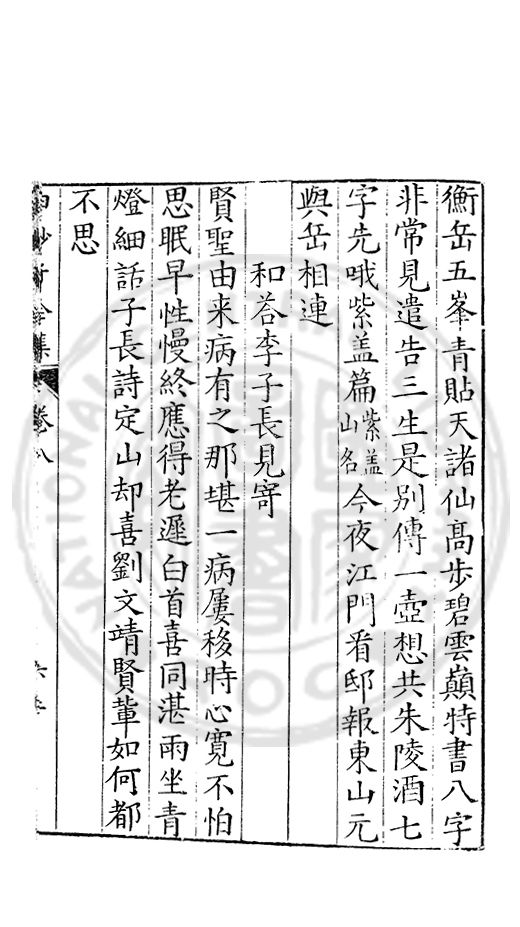 衡岳五峯青貼天諸仙高步碧雲巔特書八字
非常見遣告三生是別傳一壺想共朱陵酒七
字先哦紫盖篇紫盖山名今夜江門看邸報東山元
與岳相連
和荅李子長見寄
賢聖由来病有之那堪一病屢移時心寬不怕
思眠早性慢終應得老遲白首喜同湛雨坐青
燈細話子長詩定山却喜劉文靖賢輩如何都
不思
卷八